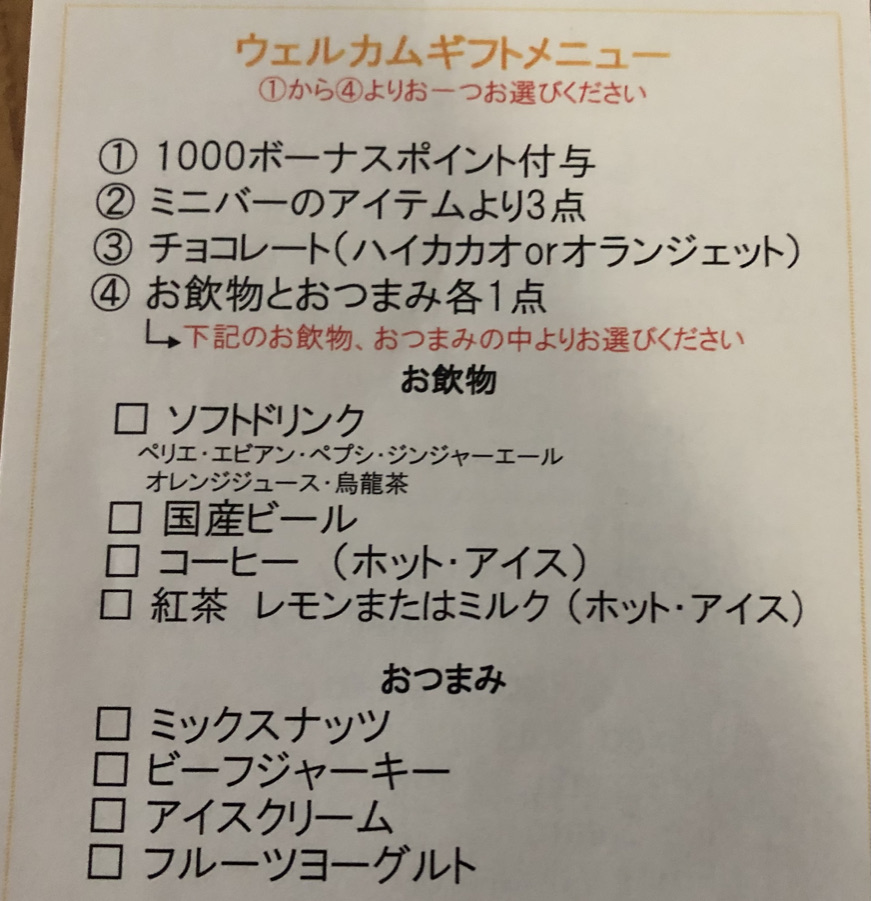 ウェルカムギフトメニュー
①から④よりお一つお選びください
① 1000ボーナスポイント付与
② ミニバーのアイテムより3点
③ チョコレート(ハイカカオorオランジェット)
④ お飲物とおつまみ各1点
下記のお飲物、おつまみの中よりお選びください
お飲物
□ ソフトドリンク
ペリエ・エビアン・ペプシ・ジンジャーエール
オレンジジュース・烏龍茶
□ 国産ビール
□ コーヒー (ホット・アイス)
□ 紅茶 レモンまたはミルク (ホット・アイス)
おつまみ
□ ミックスナッツ
□ ビーフジャーキー
□ アイスクリーム
□ フルーツヨーグルト